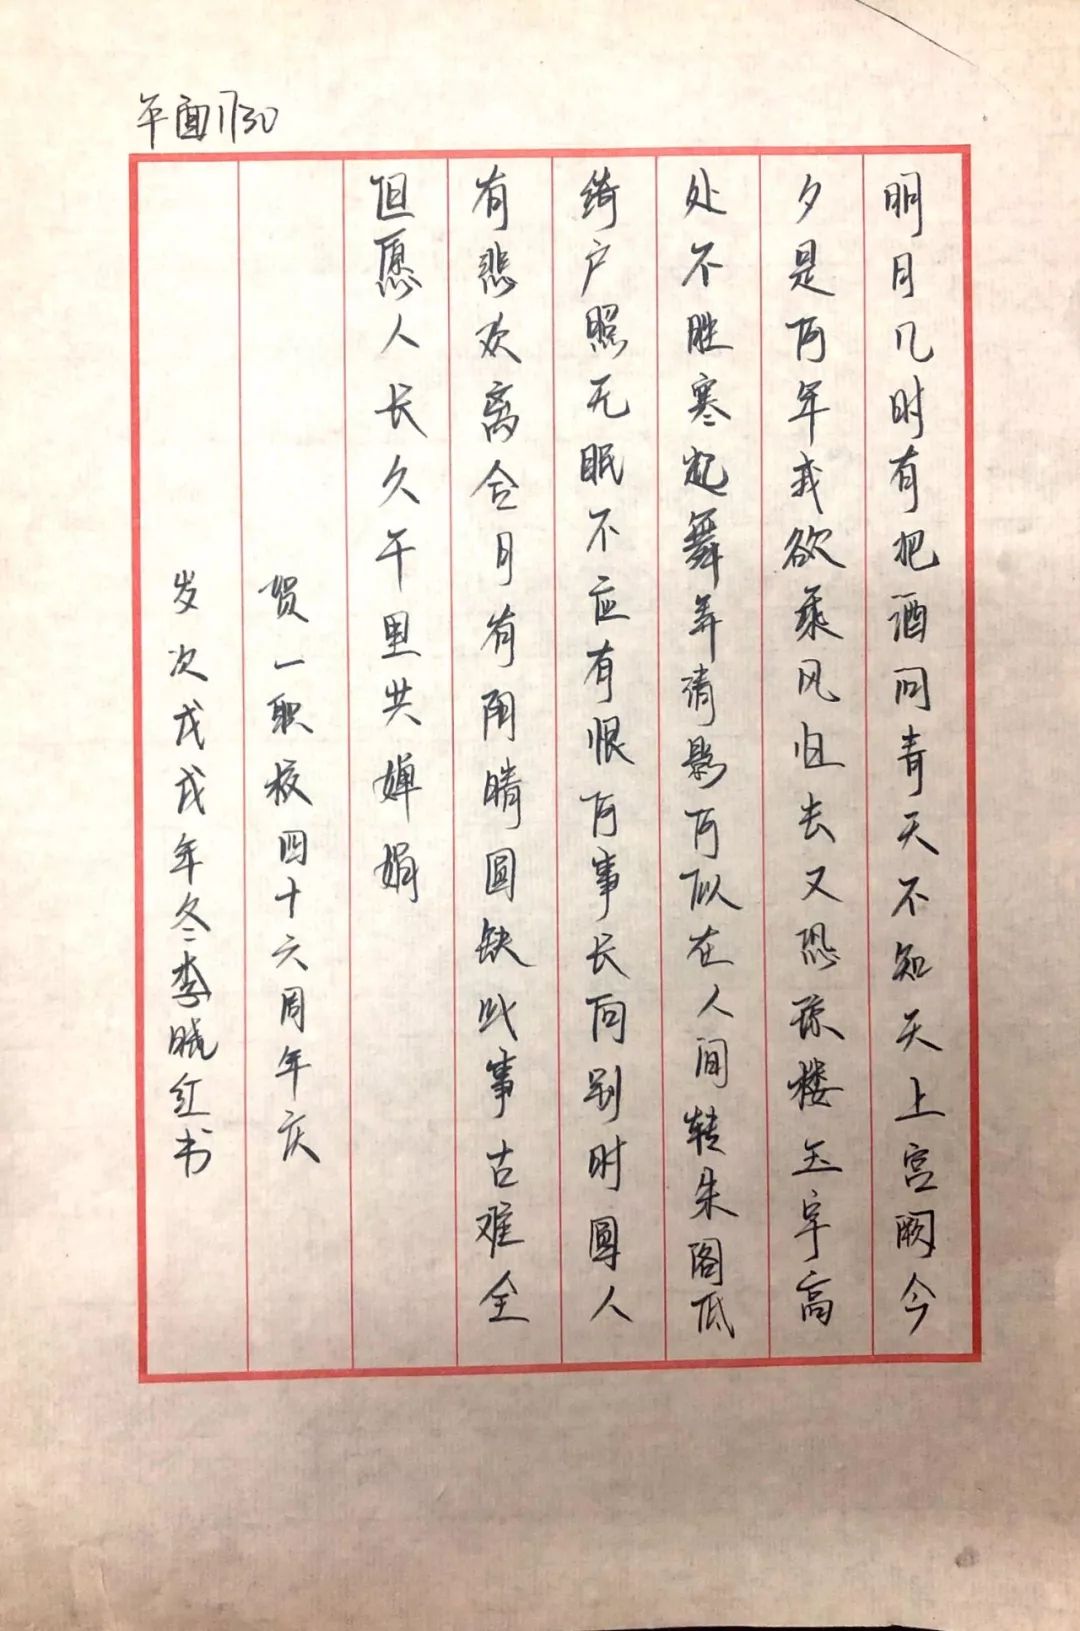 平面1730
明月几时有把酒问青天不知天上宫阙今
夕是何年我欲乘风归去又恐琼楼玉宇高
处不胜寒起舞弄清影何似在人间转朱阁低
绮户照无眠不应有恨何事长向别时圆人
有悲欢离合月有阴晴圆缺此事古难全
但愿人长久千里共婵娟
贺一职校四十六周年庆
岁次戊戌年冬李晓红书